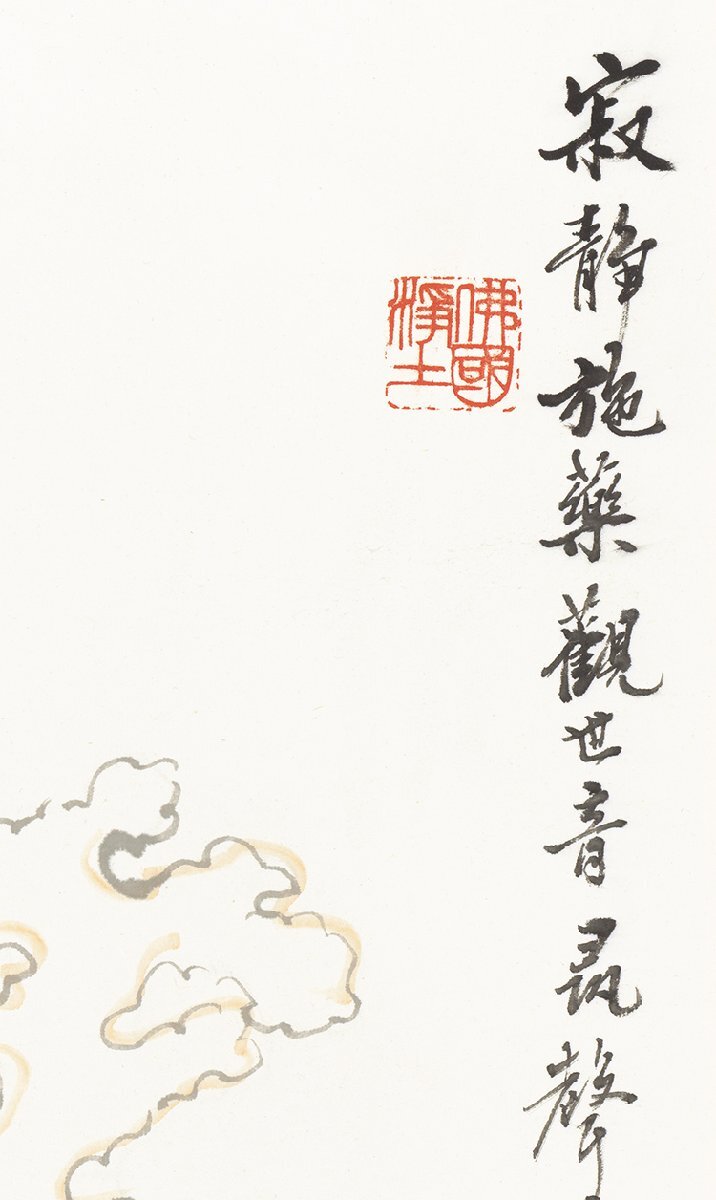 寂靜施藥觀世音尋聲
佛國
淨土